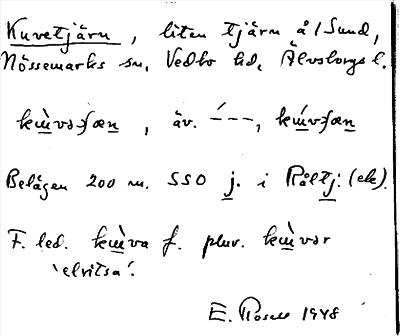 Kuvetjärn, liten tjärn å / Sund,
Nössemarks sn, Vedbo hd, Älvsborgs l.
kɯ̀vəʃæn, äv. ́---, kɯ́vʃæn
Belägen 200 m. SSO j. i Råltj. (ek).
F. led. kɯ̀va f. plur. kɯ̀vər
'elritsa'.
E. Rosell 1948